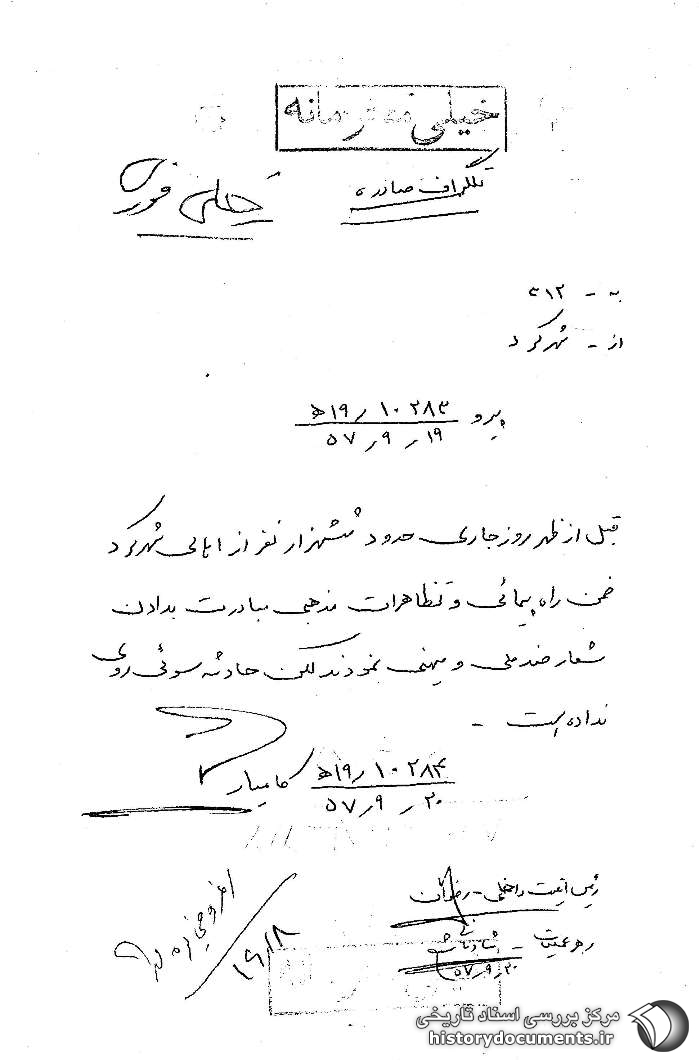 خیلی محرمانه
تلگراف صادره
خیلی فوری
به - ۳۱۲
از - شهرکرد
پیرو ۱۰۲۸۳ / ۱۹ ه‍
۵۷/۹/۱۹
قبل از ظهر روز جاری حدود ششهزار نفر از اهالی شهرکرد
ضمن راه پیمائی و تظاهرات مذهبی مبادرت بدادن
شعار ضد ملی و میهنی نمودند لکن حادثه سوئی روی
نداده است -
۱۰۲۸۴ / ۱۹ ه‍ کامیار
۵۷/۹/۲۰
رئیس امنیت داخلی - رضوان
رهبر عملیات -
۵۷/۹/۲۰
۱۶/۱۸
مرکز بررسی اسناد تاریخی
historydocuments.ir